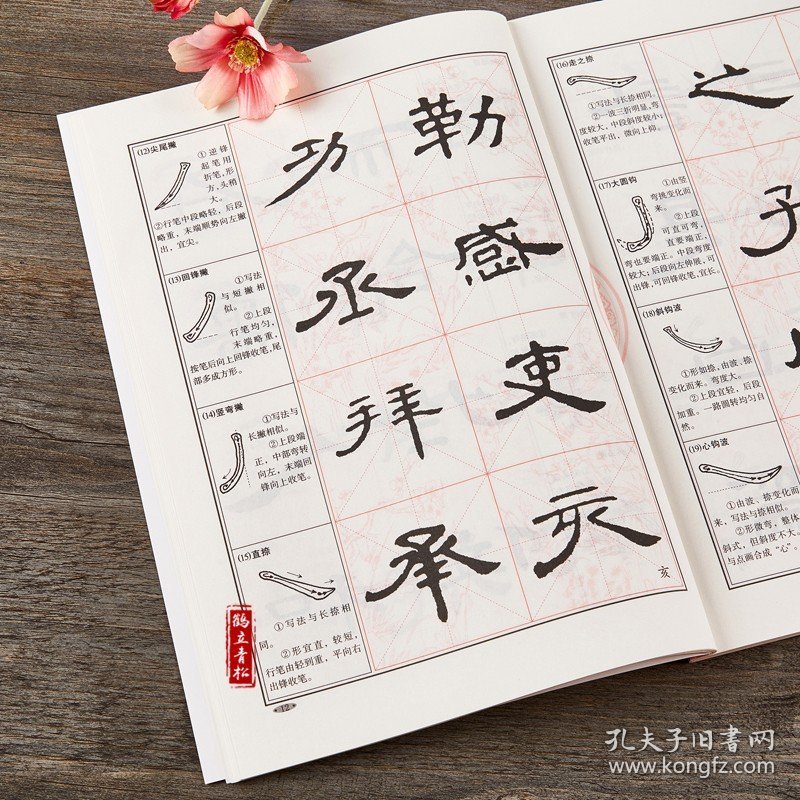 (12)尖尾撇
①逆锋
起笔用
折笔,形
方,头稍
大。
②行笔中段略轻,后段
略重,末端顺势向左撇
出,宜尖。
(13)回锋撇
①写法
与短撇相
似。
②上段
行笔均匀,
末端略重,
按笔后向上回锋收笔,尾
部多成方形。
(14)竖弯撇
①写法与
长撇相似。
②上段端
正,中部弯转
向左,末端回
锋向上收笔。
(15)直捺
①写法与长捺相
同。
②形宜直,较短,
行笔由轻到重,平向右
出锋收笔。
功 勒
丞 感
拜 吏
承 亥
亥
12
鹤立青松
(16)走之捺
①写法与长捺相同。
②一波三折明显,弯
度较大,中段斜度较小;
收笔平出,微向上仰。
(17)大圆钩
①由竖
弯撇变化而
来。
②上段
可直可弯,
直要端正,
弯也要端正。中段弯度
较大;后段向左伸展,可
出锋,可回锋收笔,宜长。
(18)斜钩波
①形如捺,由波、捺
变化而来。弯度大。
②上段宜轻,后段
加重。一路圆转均匀自
然。
(19)心钩波
①由波、捺变化而
来,写法与捺相似。
②形微弯,整体
斜式,但斜度不大。
与点画合成“心”。
之
孔夫子旧书网
www.kongfz.com